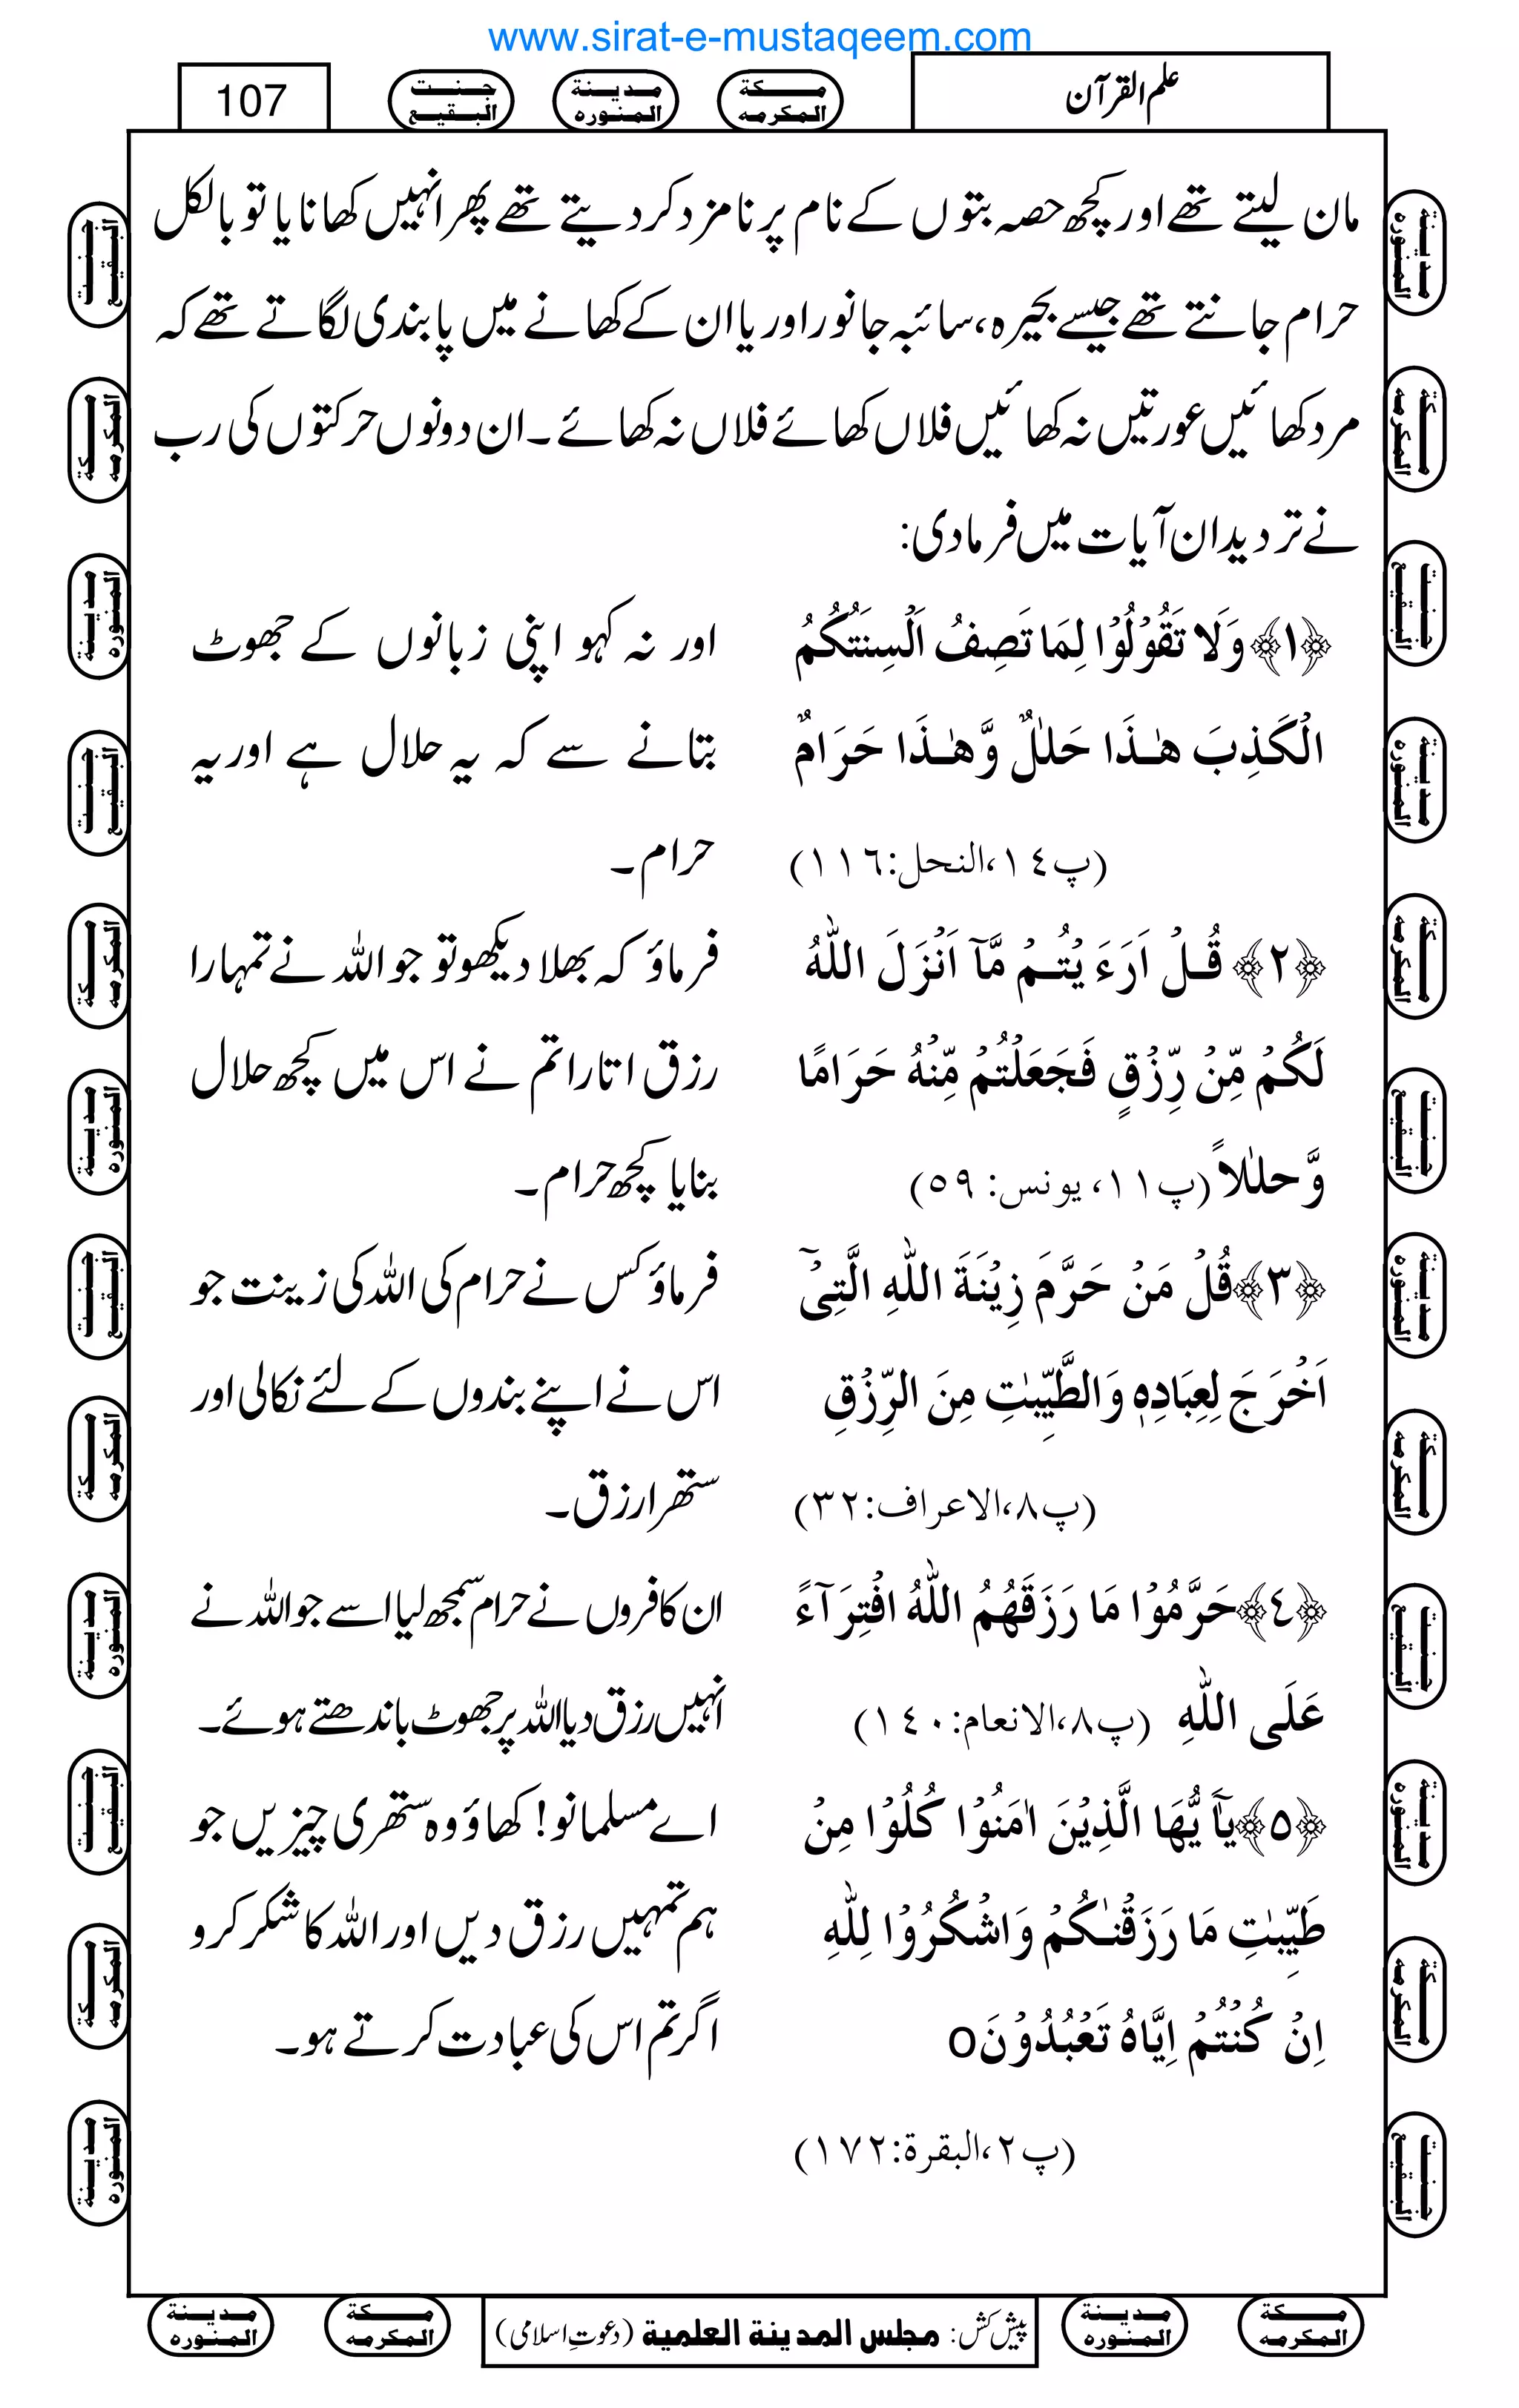 www.sirat-e-mustaqeem.com
علم القرآن
مكة المكرمه
مدينة المنوره
جنت البقيع
107
مان لیتے تھے اور کچھ حصہ بتوں کے نام پر نامزد کر دیتے تھے پھر انہیں کھانا یا تو بالکل
حرام جانتے تھے جیسے بحیرہ، سائبہ جانور اور یا ان کے کھانے میں پابندی لگاتے تھے کہ
مرد کھائیں عورتیں نہ کھائیں فلاں کھائے فلاں نہ کھائے۔ ان دونوں حرکتوں کی رب
نے تردید ان آیات میں فرما دی:
﴿١﴾ وَلَا تَقُوْلُوْا لِمَا تَصِفُ اَلْسِنَتُكُمُ
الْكَذِبَ هٰذَا حَلٰلٌ وَّهٰذَا حَرَامٌ
(پ١٤،النحل:١١٦)
اور نہ کہو اپنی زبانوں کے جھوٹ
بتانے سے کہ یہ حلال ہے اور یہ
حرام۔
﴿٢﴾ قُلْ اَرَءَيْتُمْ مَّآ اَنْزَلَ اللّٰهُ
لَكُمْ مِّنْ رِّزْقٍ فَجَعَلْتُمْ مِّنْهُ حَرَامًا
وَّحلٰلاً (پ١١، يونس: ٥٩)
فرماؤ کہ بھلا دیکھو تو جو اللہ نے تمہارا
رزق اتارا تم نے اس میں کچھ حلال
بنایا کچھ حرام۔
﴿٣﴾ قُلْ مَنْ حَرَّمَ زِيْنَةَ اللّٰهِ الَّتِىْٓ
اَخْرَجَ لِعِبَادِهٖ وَالطَّيِّبٰتِ مِنَ الرِّزْقِ
(پ٨،الاعراف:٣٢)
فرماؤ کس نے حرام کی اللہ کی زینت جو
اس نے اپنے بندوں کے لئے نکالی اور
ستھرا رزق۔
﴿٤﴾ حَرَّمُوْا مَا رَزَقَهُمُ اللّٰهُ افْتِرَآءً
عَلَى اللّٰهِ (پ٨،الانعام:١٤٠)
ان کافروں نے حرام سمجھ لیا اسے جو اللہ نے
انہیں رزق دیا اللہ پر جھوٹ باندھتے ہوئے۔
﴿٥﴾ يٰٓاَيُّهَا الَّذِيْنَ اٰمَنُوْا كُلُوْا مِنْ
طَيِّبٰتِ مَا رَزَقْنٰكُمْ وَاشْكُرُوْا لِلّٰهِ
اِنْ كُنْتُمْ اِيَّاهُ تَعْبُدُوْنَ o
(پ٢،البقرة:١٧٢)
اے مسلمانو! کھاؤ وہ ستھری چیزیں جو
ہم تمہیں رزق دیں اور اللہ کا شکر کرو
اگر تم اس کی عبادت کرتے ہو۔
مكة المكرمه
مدينة المنوره
پیش کش: مجلس المدينة العلمية (دعوتِ اسلامی)
مكة المكرمه
مدينة المنوره